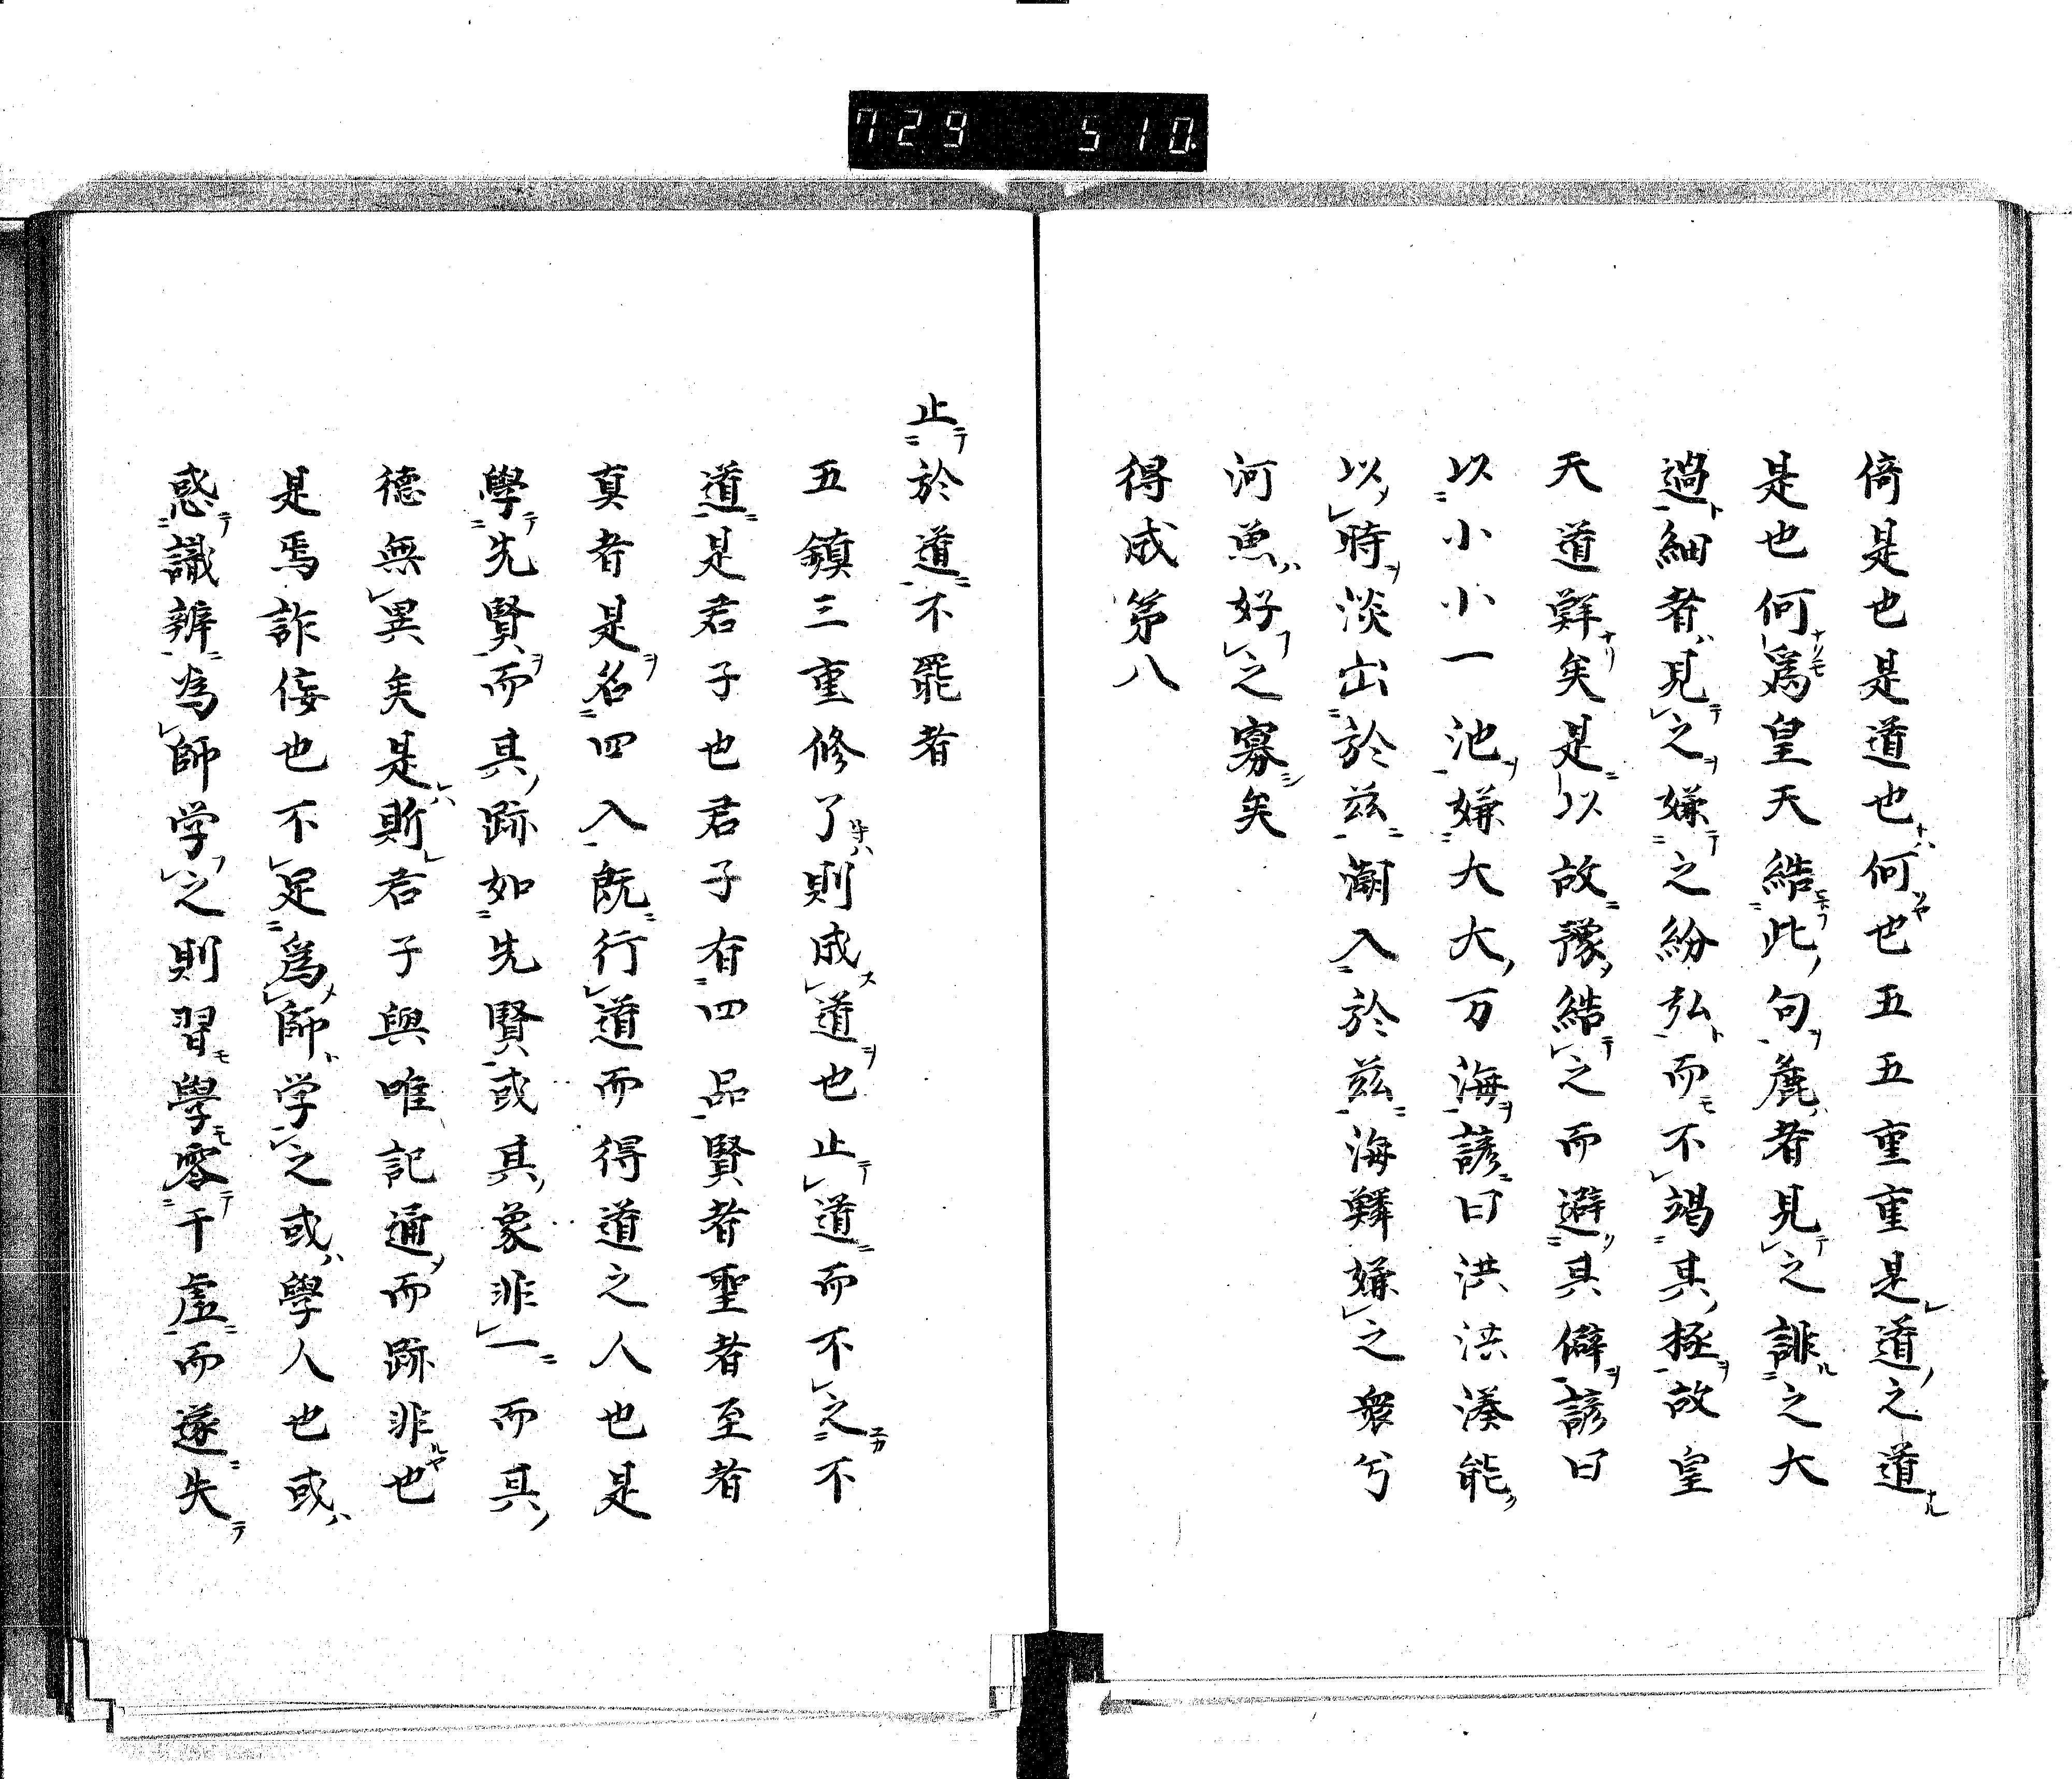 729 510
倚是也是道也何也五五重重是道之道
是也何爲皇天結此句麁者見之誹之大
過細者見之嫌之紛弘而不竭其極故皇
天道鮮矣是以故豫結之而避其僻諺曰
以小小一池嫌大大万海諺曰洪洪湊能
以時淡出於茲瀬入於茲海鱗嫌之衆兮
河魚好之寡矣
得成第八
止於道不罷者
五鎮三重修了則成道也止道而不之不
道是君子也君子有四品賢者聖者至者
真者是名四入既行道而得道之人也是
學先賢而其跡如先賢或其象非一而其
德無異矣是斯君子與唯記通而跡非也
是焉詐侫也不足爲師学之或學人也或
惑識辨為師学之則習學零干虛而遂失